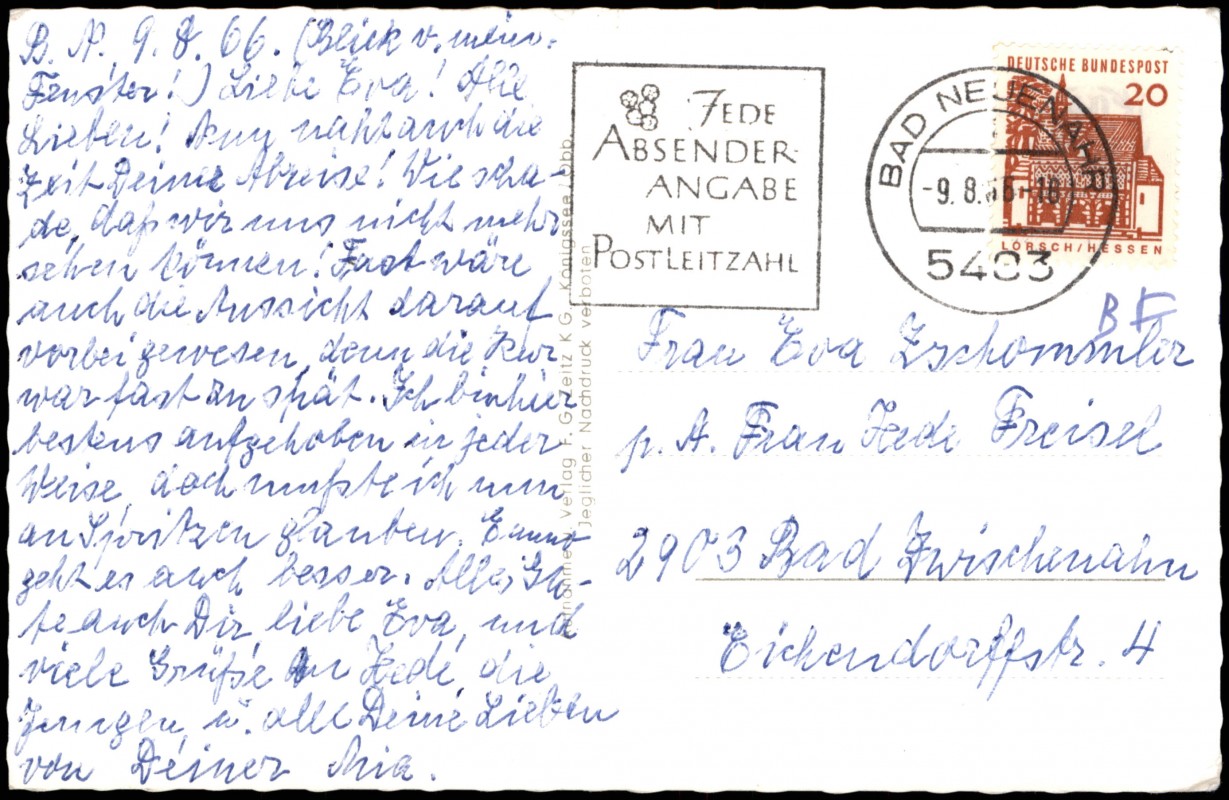 B. N. 9. 8. 66. (Blick v. mein.
Fenster!) Liebe Eva! Alle
Lieben! Nun naht auch die
Zeit Deiner Abreise! Wie scha-
de, daß wir uns nicht mehr
sehen können! Fast wäre
auch die Aussicht darauf
vorbei gewesen, denn die Kur
war fast zu spät. Ich bin hier
bestens aufgehoben in jeder
Weise, doch mußte ich nun
an Spritzen glauben.
geht es auch besser. Alles Gu-
te auch Dir, liebe Eva, und
viele Grüße an Hede, die
Jungen, u. alle Deine Lieben
von Deiner Mia.
Verlag F. G. Zeitz K G., Königssee / Obb.
Jeglicher Nachdruck verboten
JEDE
ABSENDER-
ANGABE
MIT
POSTLEITZAHL
BAD NEUENAHR
-9. 8. 66-18
5483
DEUTSCHE BUNDESPOST
20
LORSCH/HESSEN
B F
Frau Eva Zschommler
p. A. Frau Hede Freisel
2903 Bad Zwischenahn
Eichendorffstr. 4